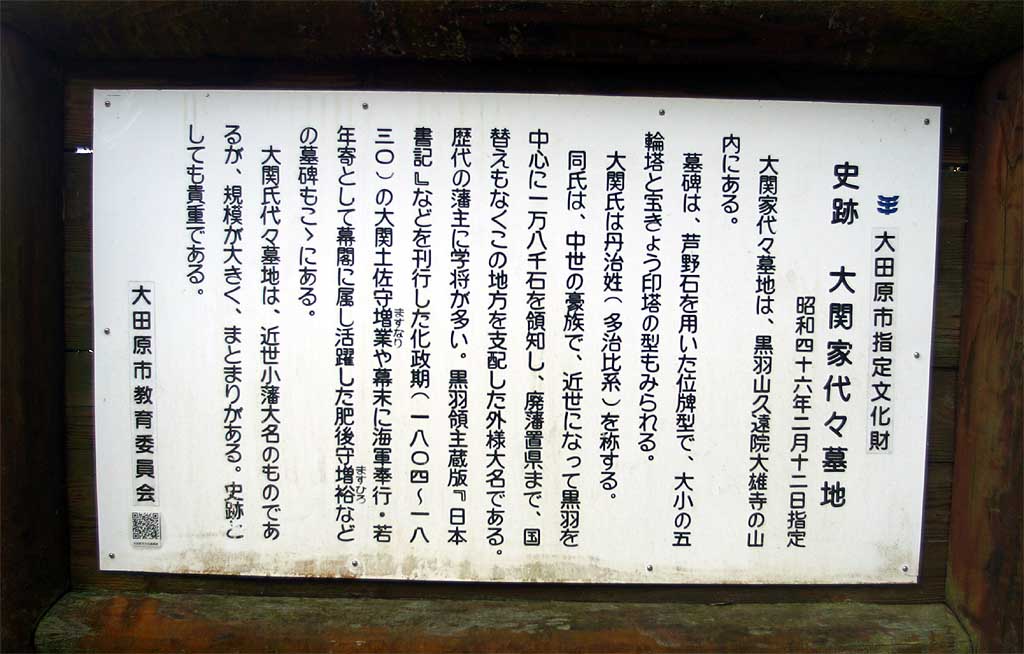 大田原市指定文化財
史跡 大関家代々墓地
昭和四十六年二月十二日指定
大関家代々墓地は、黒羽山久遠院大雄寺の山
内にある。
墓碑は、芦野石を用いた位牌型で、大小の五
輪塔と宝きょう印塔の型もみられる。
大関氏は丹治姓(多治比系)を称する。
同氏は、中世の豪族で、近世になって黒羽を
中心に一万八千石を領知し、廃藩置県まで、国
替えもなくこの地方を支配した外様大名である。
歴代の藩主に学将が多い。黒羽領主蔵版『日本
書記』などを刊行した化政期(一八〇四～一八
三〇)の大関土佐守増業や幕末に海軍奉行・若
ますなり
年寄として幕閣に属し活躍した肥後守増裕など
ますひろ
の墓碑もこゝにある。
大関氏代々墓地は、近世小藩大名のものであ
るが、規模が大きく、まとまりがある。史跡と
しても貴重である。
大田原市教育委員会